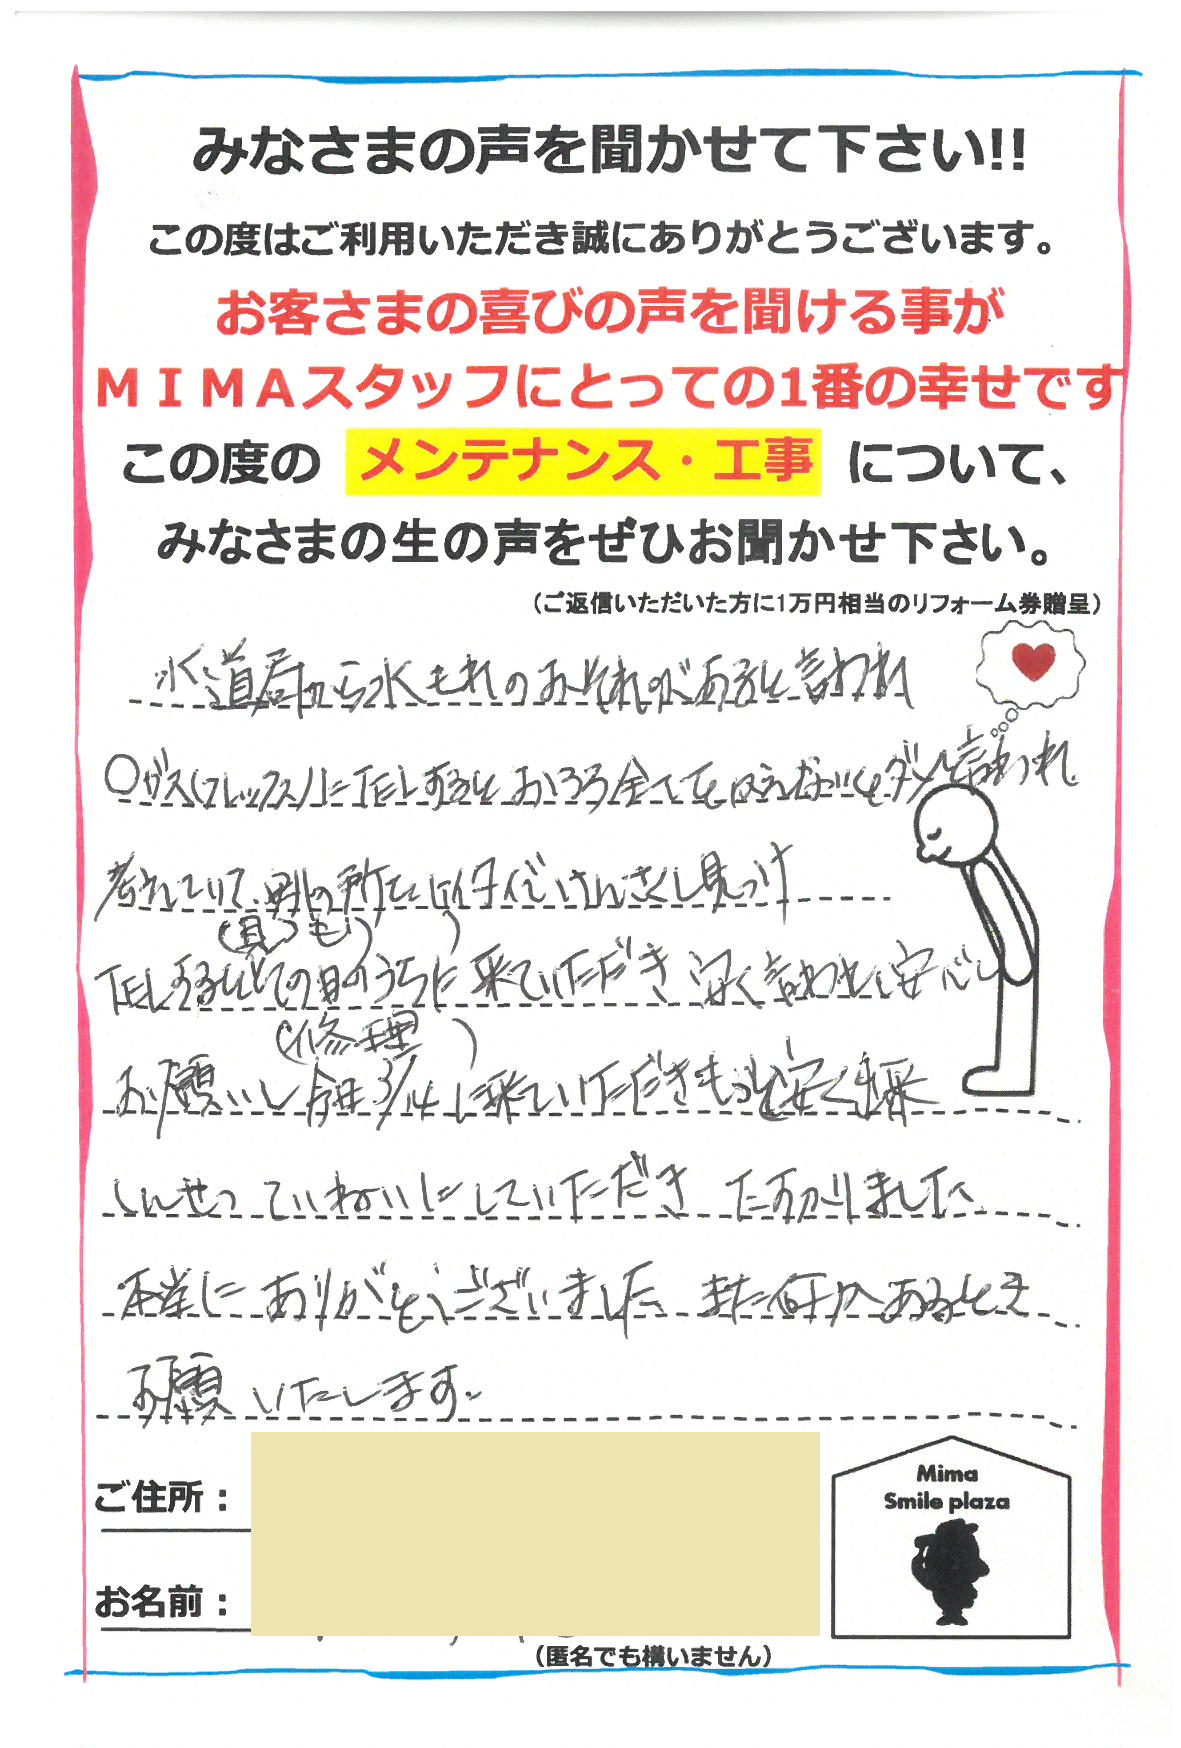 みなさまの声を聞かせて下さい!!
この度はご利用いただき誠にありがとうございます。
お客さまの喜びの声を聞ける事が
ＭＩＭＡスタッフにとっての1番の幸せです
この度の メンテナンス・工事 について、
みなさまの生の声をぜひお聞かせ下さい。
（ご返信いただいた方に1万円相当のリフォーム券贈呈）
水道局から水もれのおそれがあると言われ
〇ガス(フレックス)にTELすると おふろ全てを 言われ
考えていて、別の所を けんさくし見つけ
(見つもり)
TELするとその日のうちに来ていただき 安く言われ 安心し
(修理)
お願いし 今日3/14に来ていただきもっと安く出来
しんせつ ていねいにしていただき たすかりました
本当に ありがとうございました また何かあるとき
お願いいたします。
ご住所：
お名前：
（匿名でも構いません）
Mima
Smile plaza